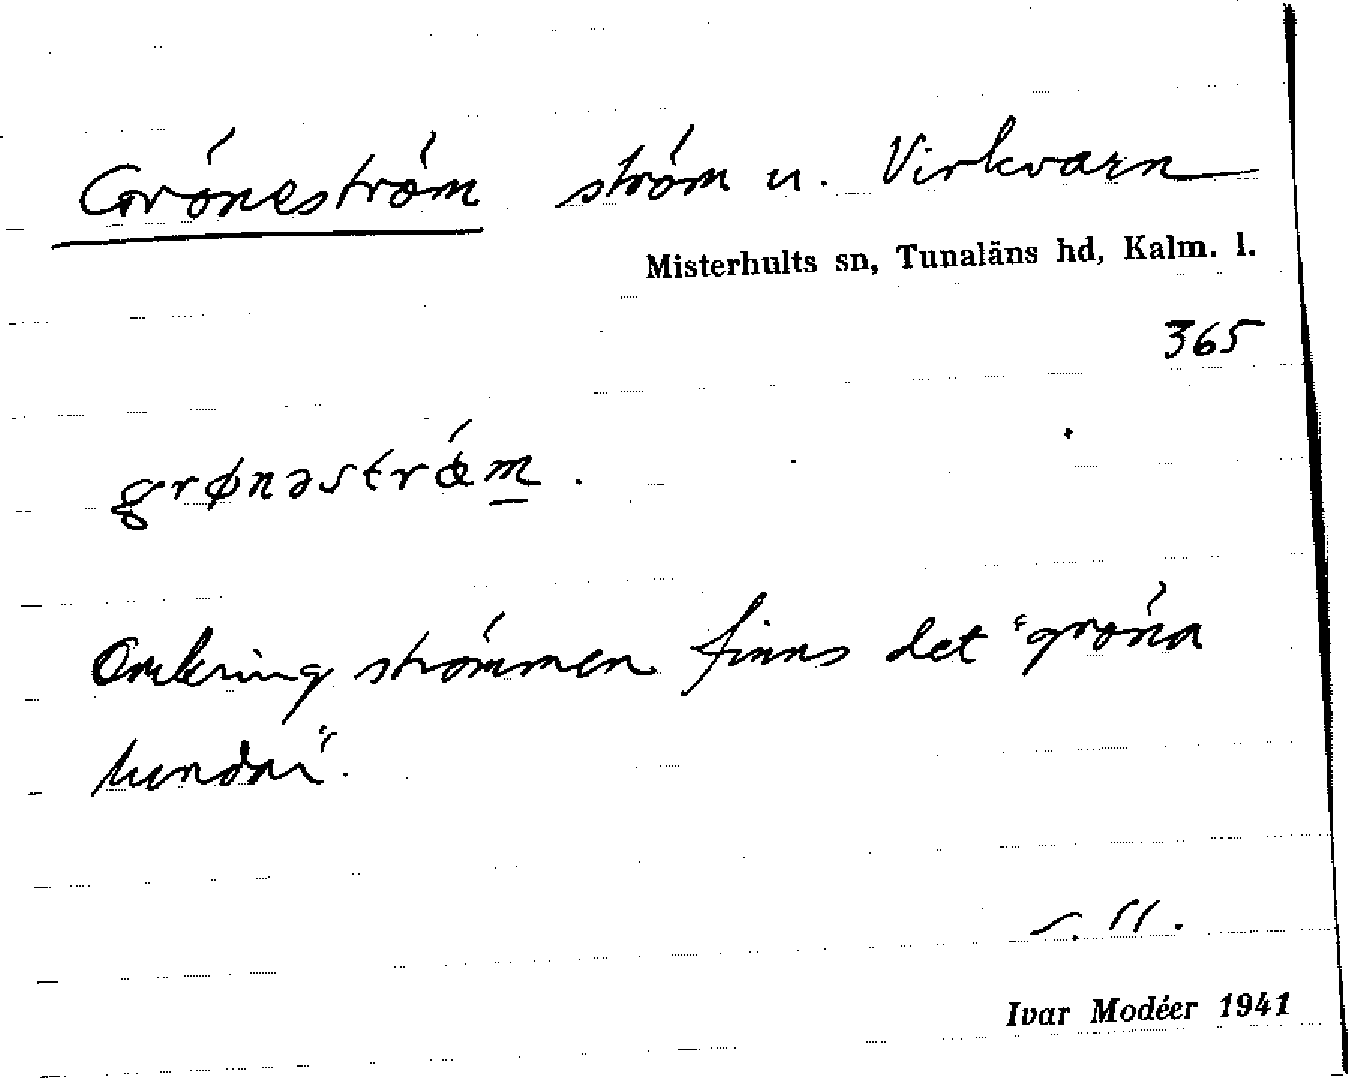 Gröneström ström u. Virkvarn
Misterhults sn, Tunaläns hd, Kalm. l.
365
grønəstrœm.
Omkring strömmen finns det "gröna
lundar".
s. 11.
Ivar Modéer 1941